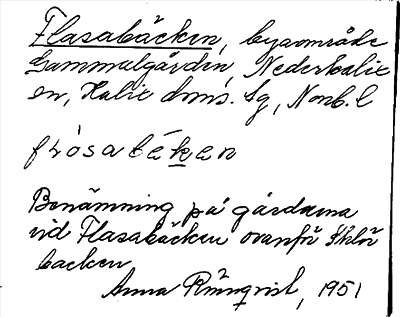 Flasabäcken, byaområde
Gammalgården, Nederkalix
en, Kalix doms. sg, Norrb. l
flósabẹ́ken
Benämning på gårdarna
vid Flasabäcken ovanför
backen
Anna Rönnqvist, 1951